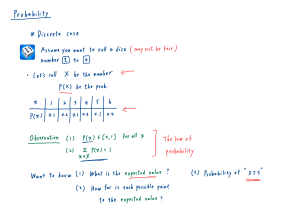 Probability
* Discrete case
Assume you want to roll a dice (may not be fair)
number 1 to 6
• Let's call X be the number
P(X) be the prob.
X 1 2 3 4 5 6
P(X) 0.1 0.2 0.1
Observation (1) P(X) ∈ [0,1] for all X
(2) Σ P(X) = 1
X=X
The law of
probability
Want to know (1) What is the expected value?
(3) Probability of "333"
(2) How far is each possible point
to the expected value?